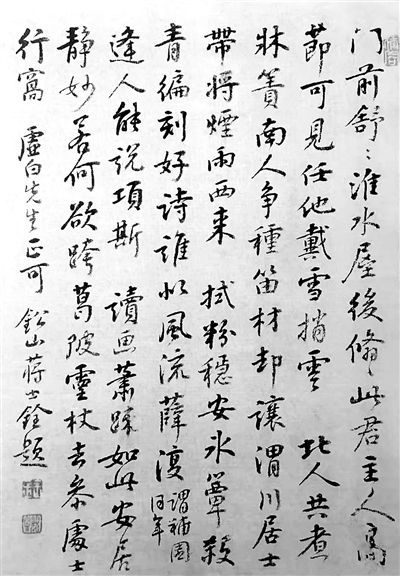 门前舒〻淮水屋後翛〻此君主人高
節可見任他戴雪捎雲 北人共煮
牀簀南人争種笛材却讓渭川居士
帶將煙雨西來 拭粉穩安冰簟殺
青編刻好詩誰似風流薛復謂補園同年
逢人能說項斯 讀畫蕭踈如此安居
静妙若何欲跨葛陂靈杖去參處士
行窩 虛白先生正可 鉛山蔣士銓題